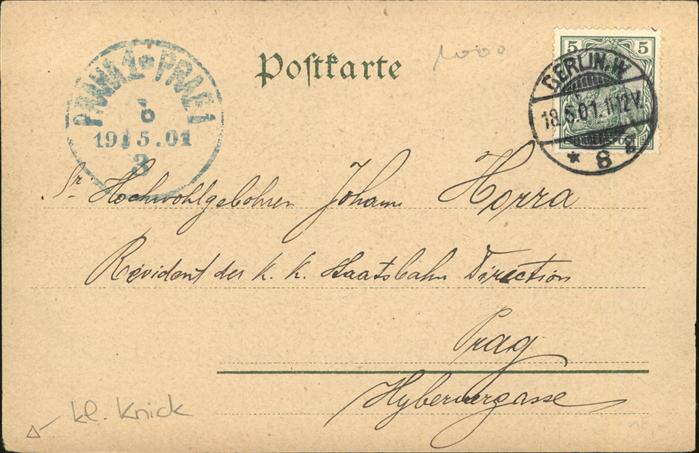 1000
Postkarte
PRAHA 1 * PRAG 1
19 5.01
3
5 5
BERLIN. W.
18.5.01.11-12V.
* 8 a
Sr Hochwohlgebohren Johann Horra
Revident der k. k. Staatsbahn Direction
Prag
Hybernergasse
kl. Knick